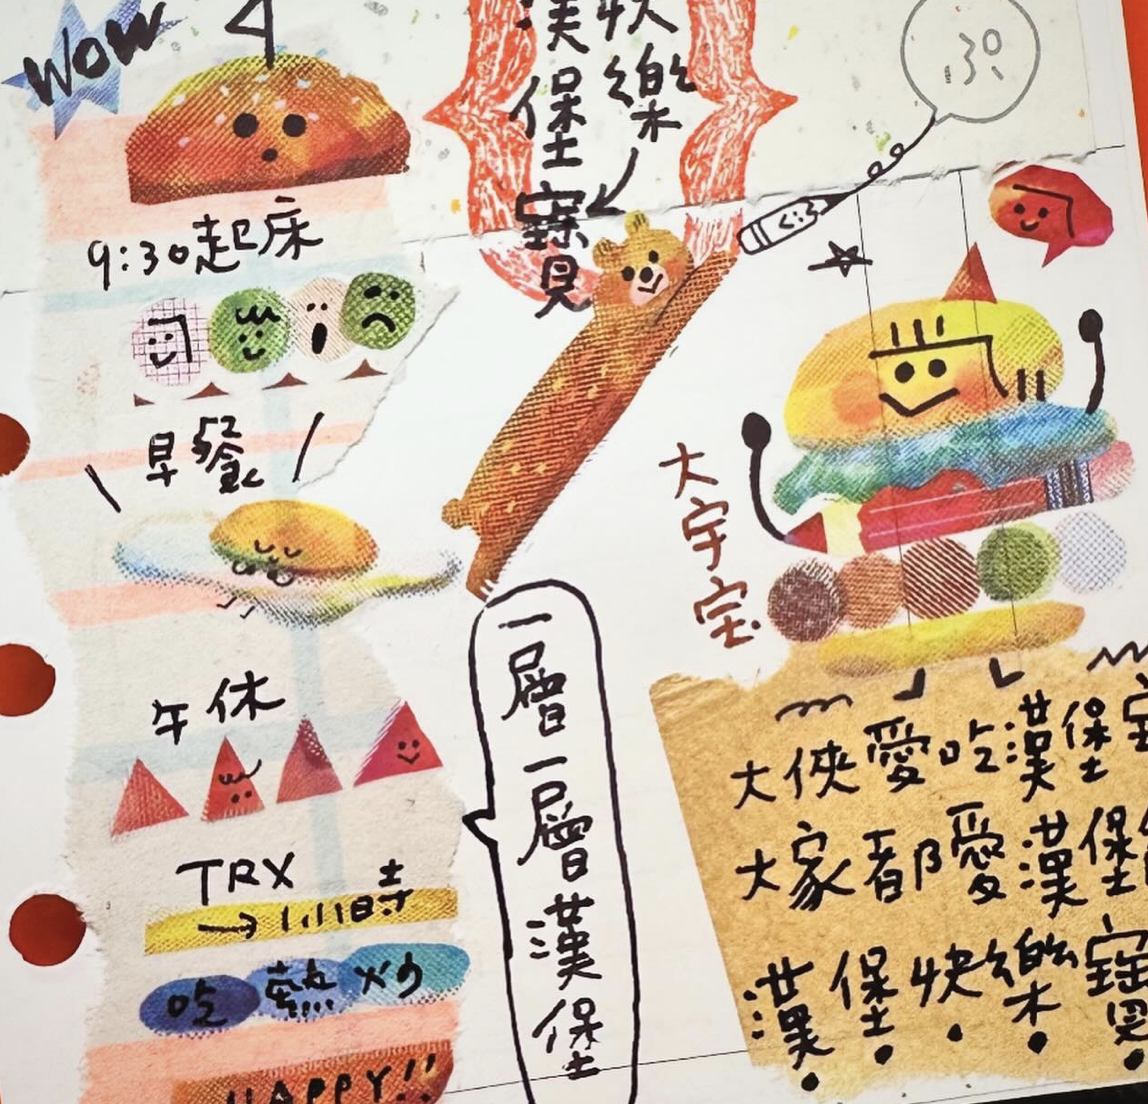 WOW
9:30起床
早餐
午休
TRX
→1小時
吃熱炒
HAPPY!!
快樂
漢堡寶貝
ぷ
一層一層漢堡
大宇宝
大俠愛吃漢堡
大家都愛漢堡
漢堡快樂寶